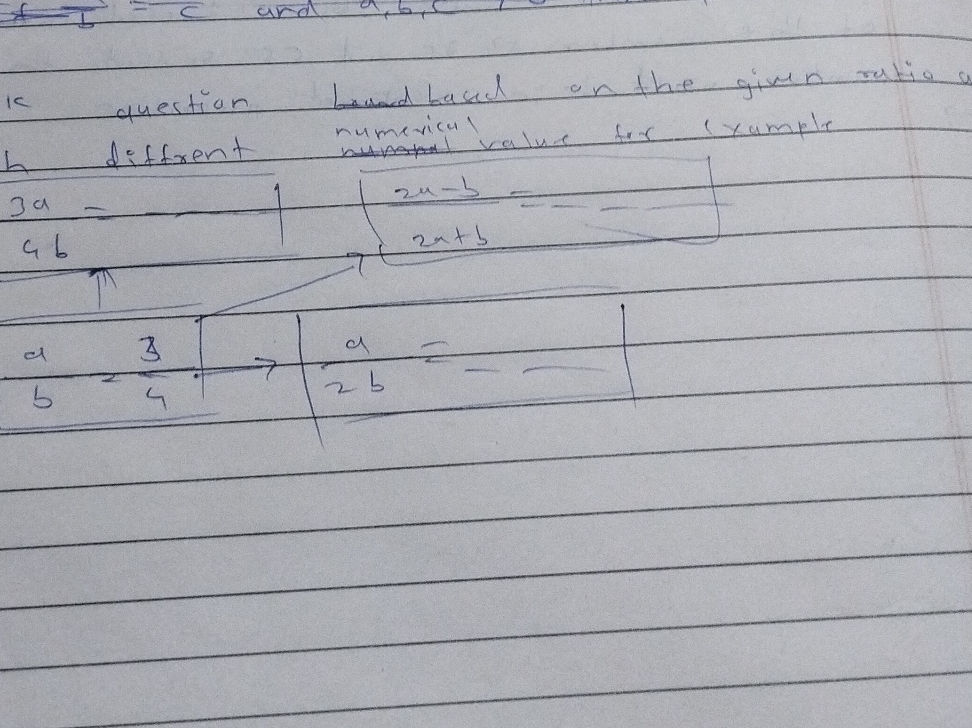 = c and a, b, c
question based on the given ratio
diffrent numerical value for example
3a = 2a-b =
4b 2a+b
a 3 a =
b = 4 2b